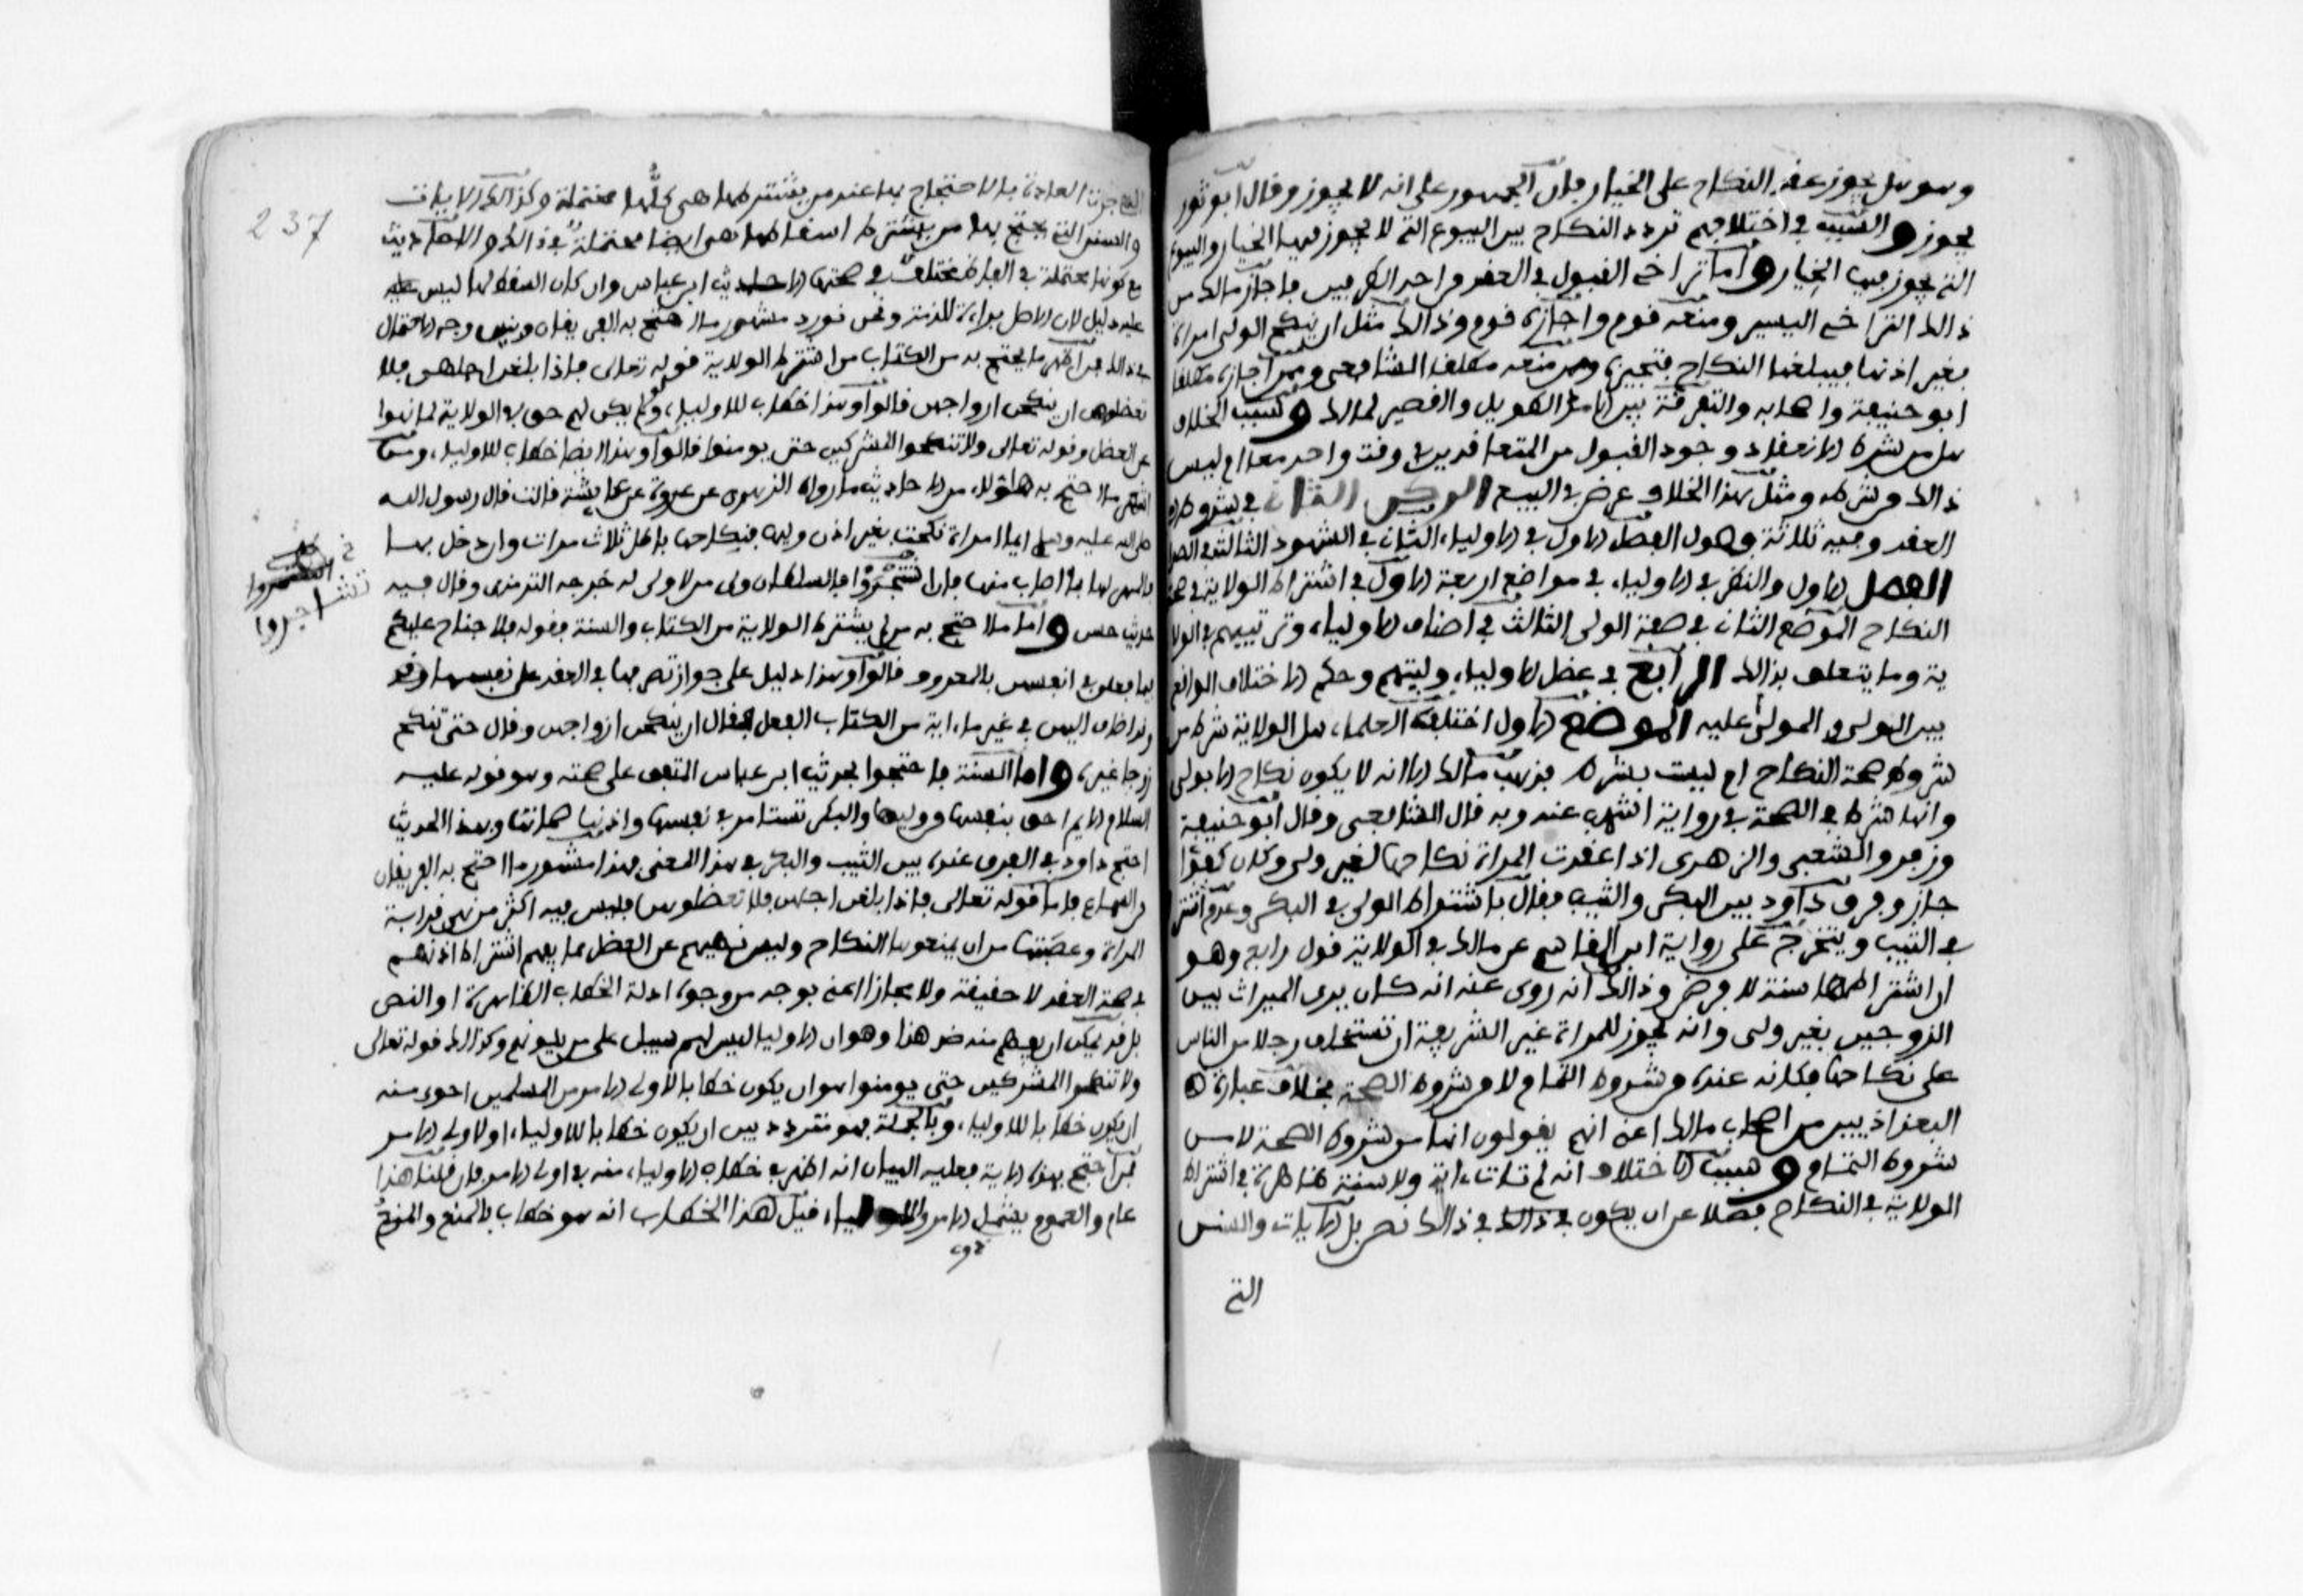 وهو هل يجوز عقد النكاح على الخيار فان الجمهور على انه لا يجوز وقال ابو ثور
يجوز والسبب في اختلافهم تردد النكاح بين البيوع التي لا يجوز فيها الخيار والبيوع
التي يجوز فيها الخيار واما تراخي القبول في العقد من احد الطرفين فاجاز مالك من
ذالك التراخي اليسير ومنعه قوم واجازه قوم وذالك مثل ان ينكح الولي امراة
بغير اذنها فيبلغها النكاح فتجيزه وممن منعه مطلقا الشافعي وممن اجازه مطلقا
ابو حنيفة واصحابه والتفرقة بين الامد الطويل والقصير لمالك وسبب الخلاف
هل من شرط الانعقاد وجود القبول من المتعاقدين في وقت واحد معا ام ليس
ذالك من شرطه ومثل هذا الخلاف عرض في البيع الركن الثاني في شروط
العقد وفيه ثلاثة فصول الفصل الاول في الاولياء الثاني في الشهود الثالث في الصداق
الفصل الاول والنظر في الاولياء في مواضع اربعة الاول في اشتراط الولاية في صحة
النكاح الموضع الثاني في صفة الولي الثالث في اصناف الاولياء وترتيبهم في الولا
ية وما يتعلق بذالك الرابع في عضل الاولياء وليتهم وحكم الاختلاف الواقع
بين الولي والمولى عليه الموضع الاول اختلف العلماء هل الولاية شرط من
شروط صحة النكاح ام ليست بشرط فذهب مالك الى انه لا يكون نكاح الا بولي
وانها شرط في الصحة في رواية اشهب عنه وبه قال الشافعي وقال ابو حنيفة
وزفر والشعبي والزهري اذا عقدت المراة نكاحها لغير ولي وكان كفوا
جاز وفرق داود بين البكر والثيب فقال باشتراط الولي في البكر وعدم اشترا
في الثيب ويتخرج على رواية ابن القاسم عن مالك في الولاية قول رابع وهو
ان اشتراطها سنة لا فرض وذالك انه روى عنه انه كان يرى الميراث بين
الزوجين بغير ولي وانه يجوز للمراة غير الشريفة ان تستخلف رجلا من الناس
على نكاحها فكانه عنده من شروط التمام لا من شروط الصحة بخلاف عبارة
البغداذيين من اصحاب مالك اعني انهم يقولون انها من شروط الصحة لا من
شروط التمام وسبب الاختلاف انه لم تات ءاية ولا سنة ظاهرة في اشتراط
الولاية في النكاح فضلا عن ان يكون في ذالك في ذالك نص بل الايات والسنن
التي
التي جرت العادة بالاحتجاج بها عند من يشترطها هي كلها محتملة وكذالك الايات
والسنن التي يحتج بها من يشترط اسقاطها هي ايضا محتملة في ذالك والاحاديث
مع كونها محتملة في الفاظها مختلف في صحتها الا حديث ابن عباس وان كان المسقط لها ليس عليه
عليه دليل لان الاصل براءة الذمة ونحن نورد مشهور ما احتج به الفريقان ونبين وجه الاحتمال
في ذالك فمن اظهر ما يحتج به من الكتاب من اشترط الولاية قوله تعالى فاذا بلغن اجلهن فلا
تعضلوهن ان ينكحن ازواجهن قالوا وهذا خطاب للاولياء ولو لم يكن لهم حق في الولاية لما نهوا
عن العضل وقوله تعالى ولا تنكحوا المشركين حتى يومنوا قالوا وهذا ايضا خطاب للاولياء ومن
اشهر ما احتج به هاؤلاء من الاحاديث ما رواه الزهري عن عروة عن عايشة قالت قال رسول الله
صلى الله عليه وسلم ايما امراة نكحت بغير اذن وليها فنكاحها باطل ثلاث مرات وان دخل بها
فالمهر لها بما اصاب منها فان اشتجروا فالسلطان ولي من لا ولي له خرجه الترمذي وقال فيه
حديث حسن واما ما احتج به من لم يشترط الولاية من الكتاب والسنة فقوله فلا جناح عليكم
فيما فعلن في انفسهن بالمعروف قالوا وهذا دليل على جواز تصرفها في العقد على نفسها وقد
وقد اضاف اليهن في غير ما ءاية من الكتاب الفعل فقال ان ينكحن ازواجهن وقال حتى تنكح
زوجا غيره واما السنة فاحتجوا بحديث ابن عباس المتفق على صحته وهو قوله عليه
السلام الايم احق بنفسها من وليها والبكر تستامر في نفسها واذنها صماتها وبهذا الحديث
احتج داود في الفرق عنده بين الثيب والبكر في هذا المعنى فهذا مشهور ما احتج به الفريقان
من السماع فاما قوله تعالى فاذا بلغن اجلهن فلا تعضلوهن فليس فيه اكثر من نهي قرابة
المراة وعصبتها من ان يمنعوها النكاح وليس نهيهم عن العضل مما يفهم اشتراط اذنهم
في صحة العقد لا حقيقة ولا مجازا اعني بوجه من وجوه ادلة الخطاب الظاهرة او النص
بل قد يمكن ان يفهم منه ضد هذا وهو ان الاولياء ليس لهم سبيل على من يلونهم وكذالك قوله تعالى
ولا تنكحوا المشركين حتى يومنوا هو ان يكون خطابا لاولي الامر من المسلمين احرى منه
ان يكون خطابا للاولياء وبالجملة فهو متردد بين ان يكون خطابا للاولياء او لاولي الامر
فمن احتج بهذه الاية فعليه البيان انه اظهر في خطاب الاولياء منه في اولي الامر فان قلنا هذا
عام والعموم يشمل الامر والاولياء قيل هذا الخطاب انه هو خطاب بالمنع والمنع
237
خ
تشاجروا